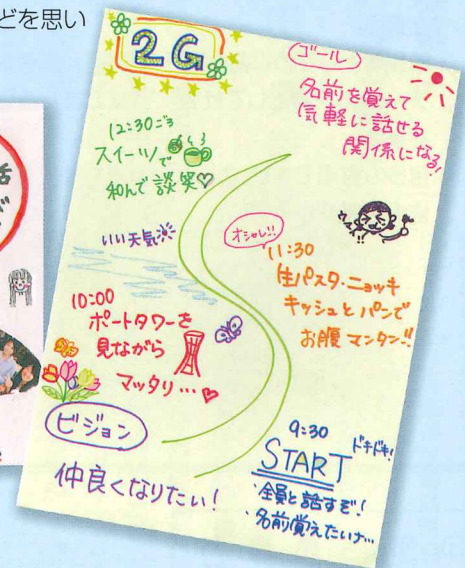 どを思い
活
ど
2G
ゴール
名前を覚えて
気軽に話せる
関係になる!
12:30ごろ
スイーツで
和んで談笑♡
いい天気
オシャレ!!
11:30
生パスタ・ニョッキ
キッシュとパンで
お腹マンタン!!
10:00
ポートタワーを
見ながら
マッタリ…♥
ビジョン
仲良くなりたい!
9:30
ドキドキ!
START
・全員と話すぞ!
・名前覚えたいナ…